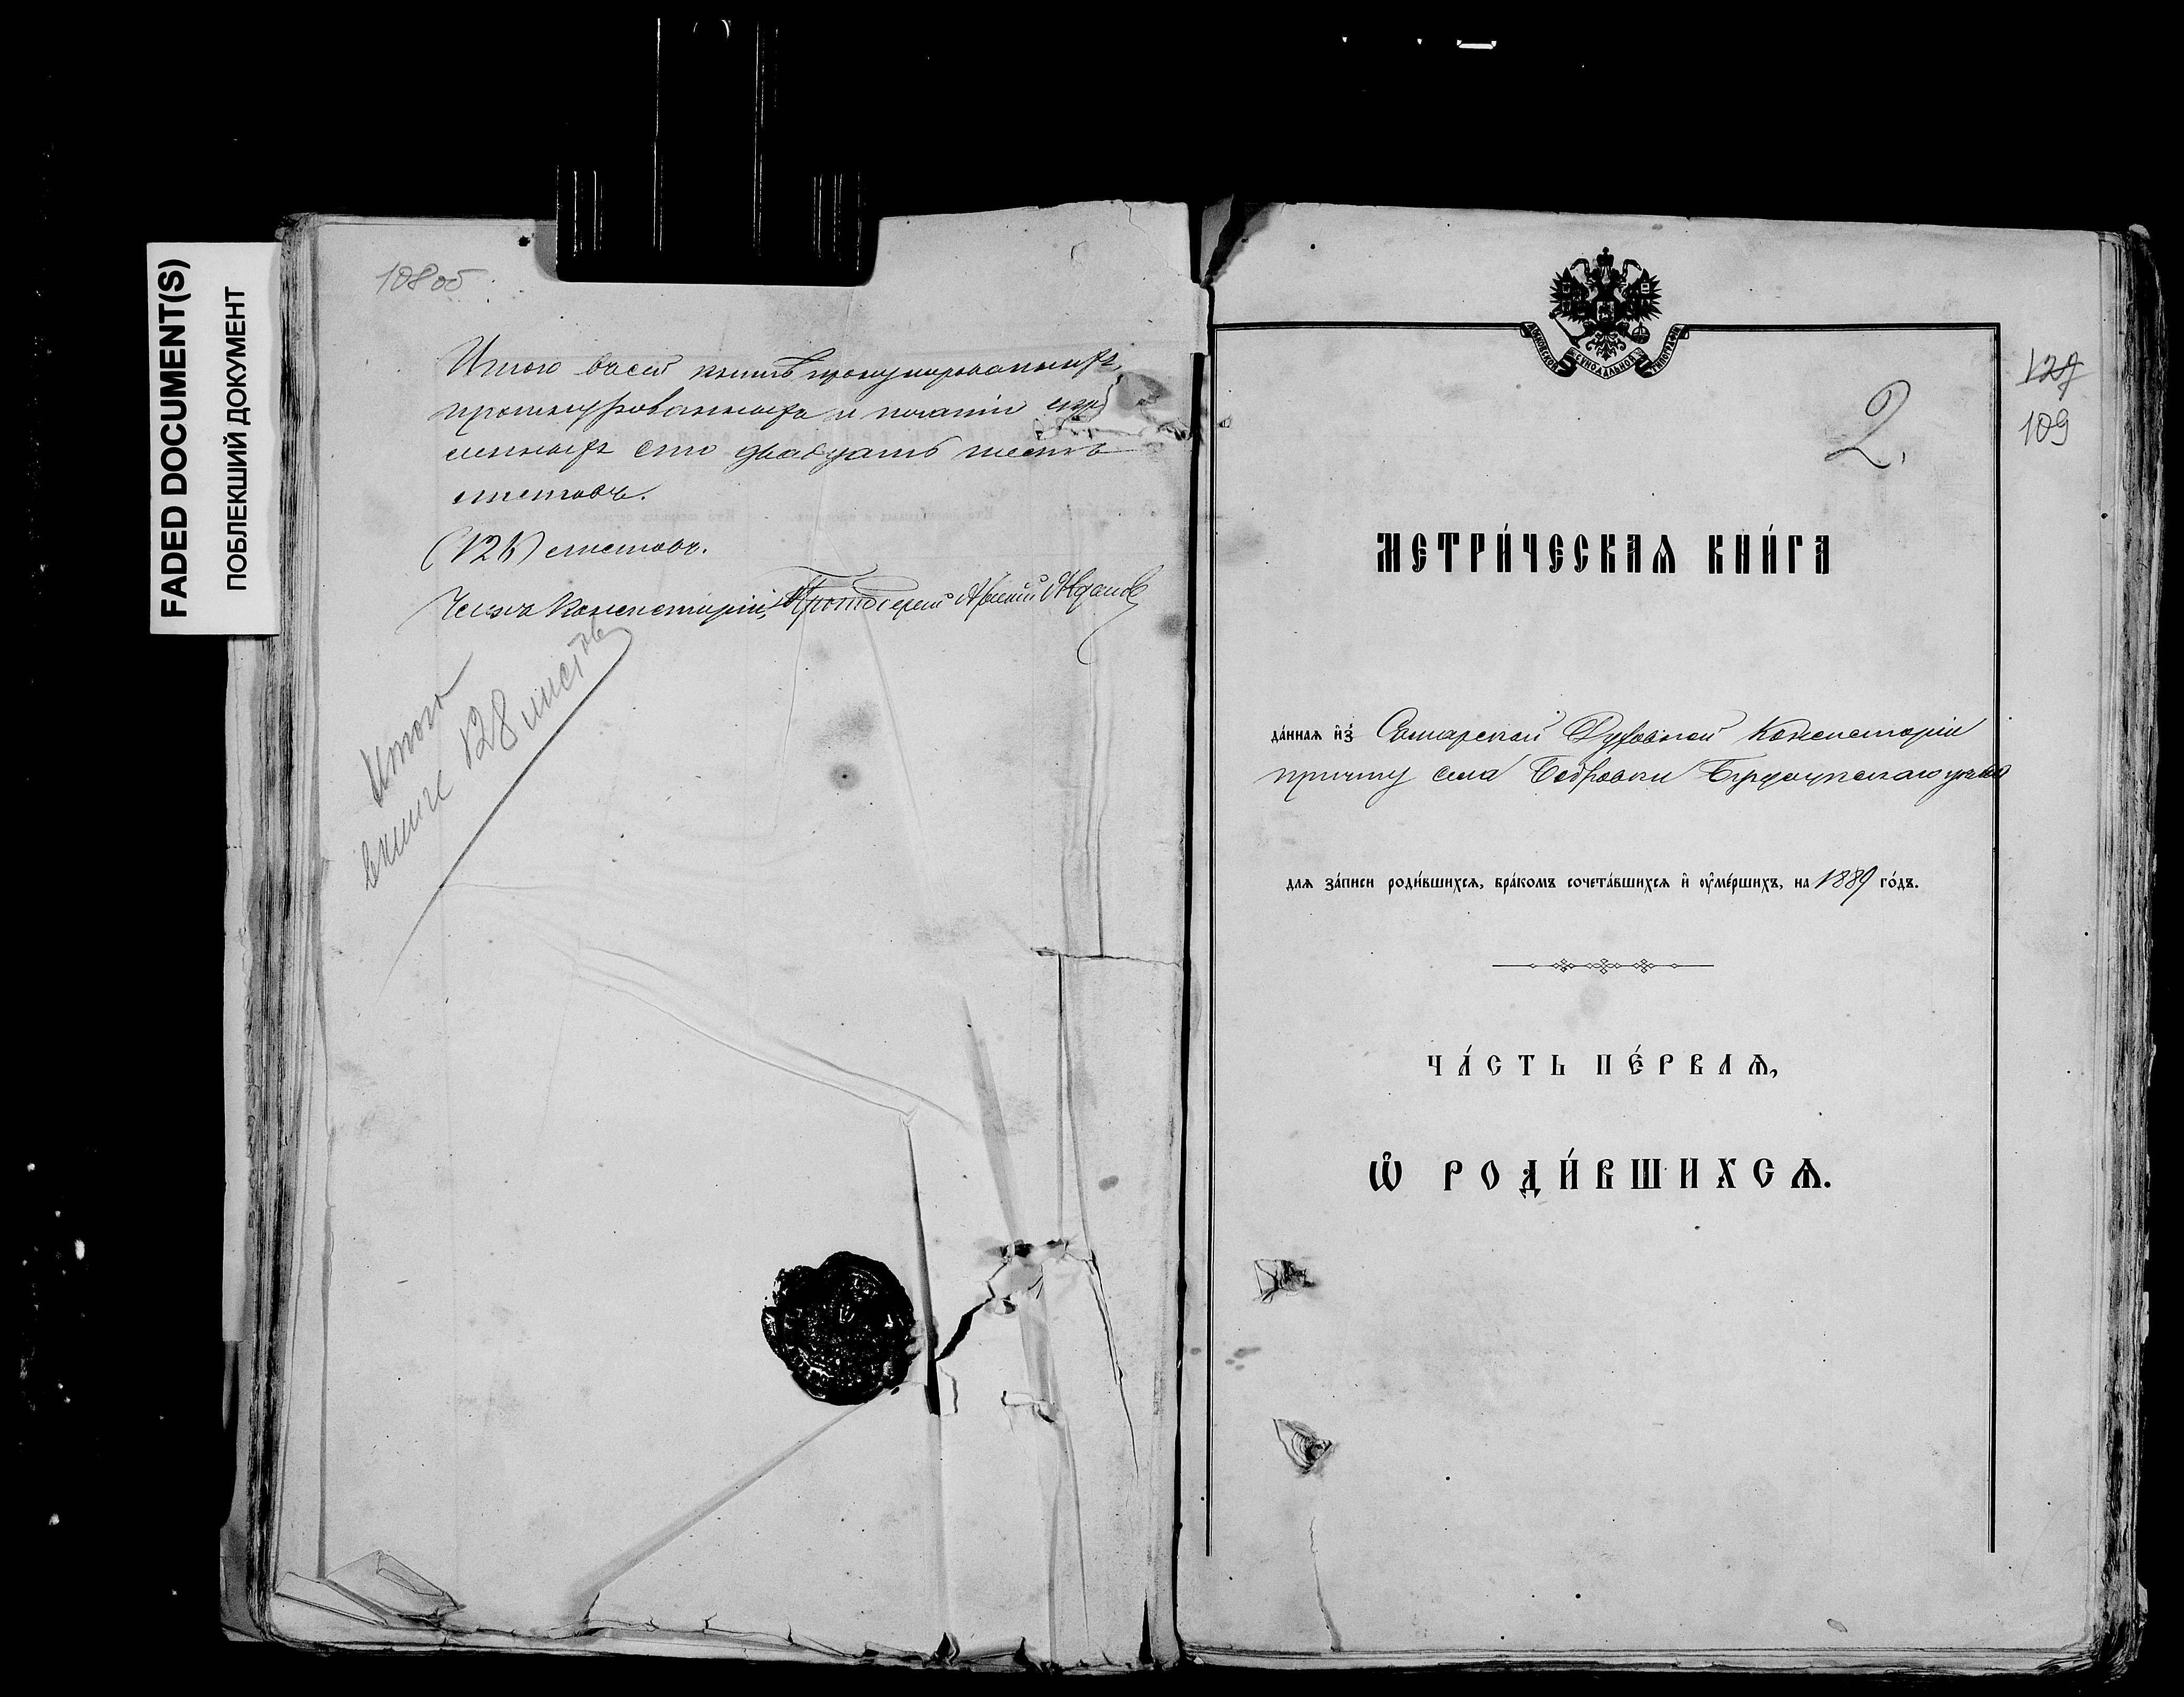 FADED DOCUMENT(S)
ПОБЛЕКШИЙ ДОКУМЕНТ
108 об
Итого в сей книгѣ пронумерованныхъ,
прошнурованныхъ и печатию скрѣ
пленныхъ сто двадцать шесть
листовъ.
(126) листовъ.
Членъ Консисторіи, Протоіерей
Итого
в книге 128 листовъ
МОСКОВСКОЙ СѴНОДАЛЬНОЙ ТИПОГРАФІИ
127
109
2.
МЕТРИ́ЧЕСКАѦ КНИ́ГА
да́ннаѧ и҆з̾ Самарской Духовной Консисторіи
причту села Бобровки Бузулукскаго уѣзда
для за́писи роди́вшихсѧ, бра́комъ сочета́вшихсѧ и҆ ᲂу҆ме́ршихъ, на 1889 го́дъ.
ЧА́СТЬ ПЕ́РВАѦ,
Ѡ҆ РОДИ́ВШИХСѦ.